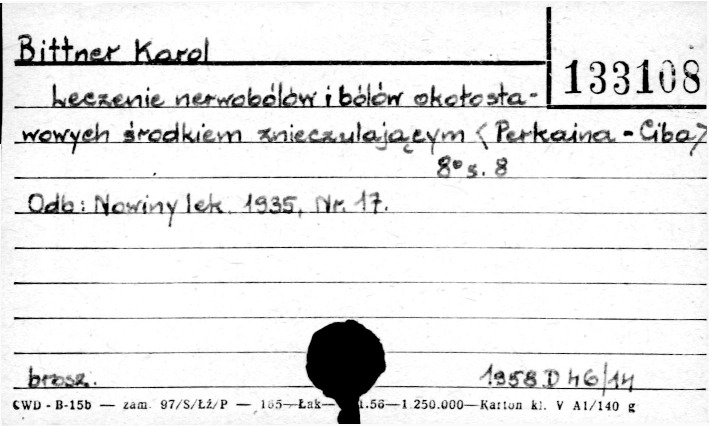 Bittner Karol
133108
Leczenie nerwobólów i bólów okołosta-
wowych środkiem znieczulającym (Perkaina - Ciba)
8° s. 8
Odb: Nowiny lek. 1935, Nr. 17.
brosz.
1958 D 46/14
CWD - B-15b — zam. 97/S/Łż/P — 165—Łak— .56—1.250.000—Karton kl. V A1/140 g